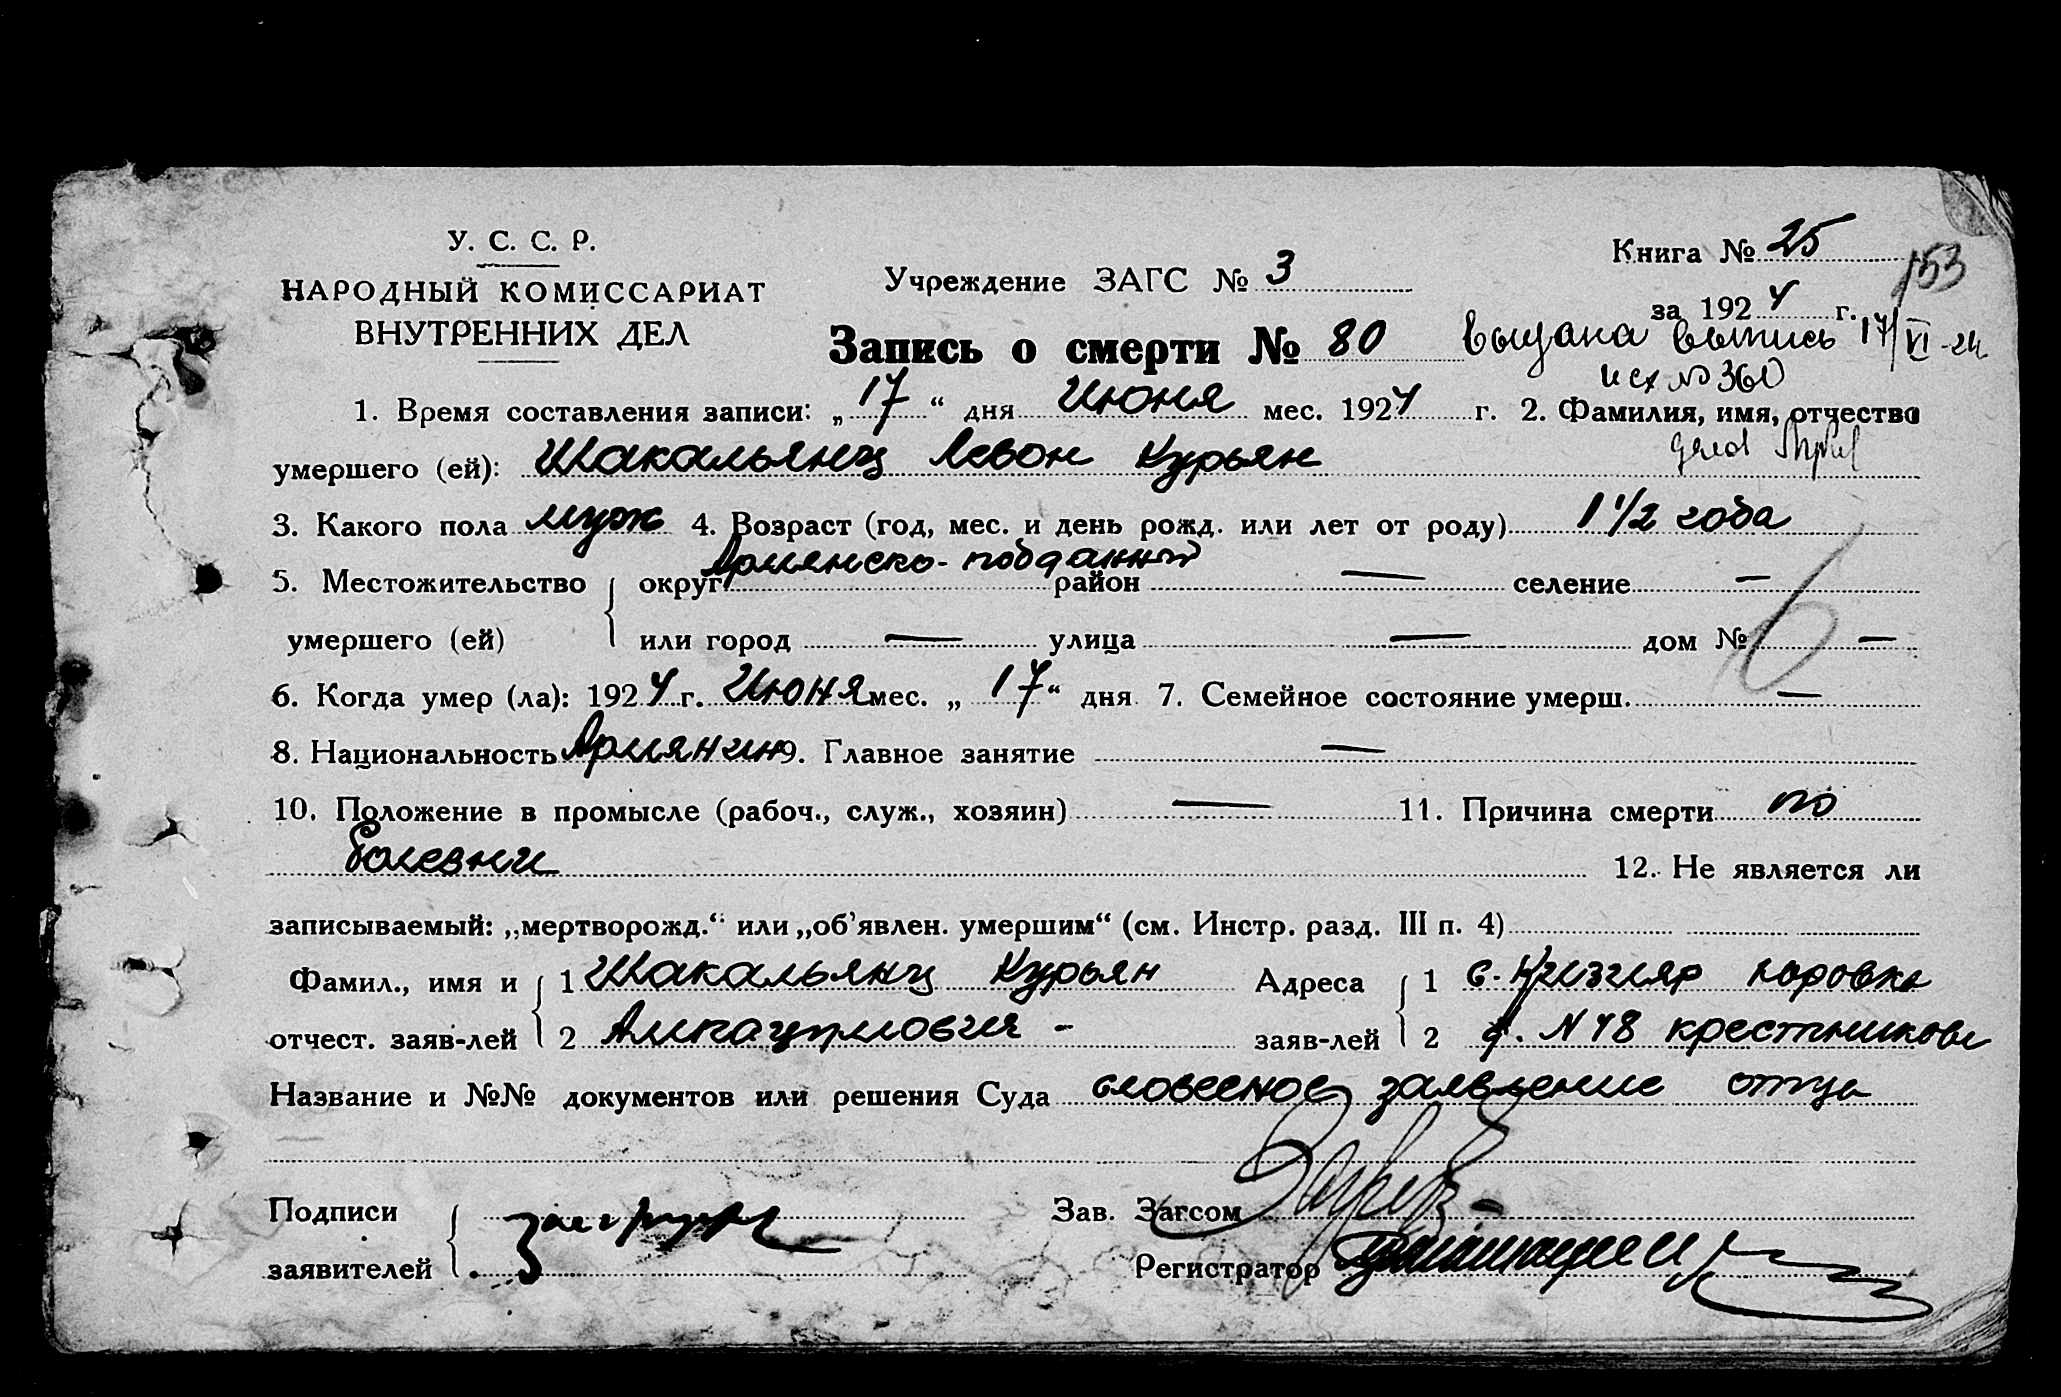 У. С. С. Р.
НАРОДНЫЙ КОМИССАРИАТ
ВНУТРЕННИХ ДЕЛ
Учреждение ЗАГС № 3
Книга № 25
153
за 1924 г.
Запись о смерти № 80
выдана выпись 17/VI-24
исх № 360
1. Время составления записи: „17“ дня Июня мес. 1924 г. 2. Фамилия, имя, отчество
умершего (ей): Шакальянц Левон Курьян
3. Какого пола муж 4. Возраст (год, мес. и день рожд. или лет от роду) 1 1/2 года
Армянско-подданный
5. Местожительство округ район — селение —
умершего (ей) или город — улица — дом № —
6
6. Когда умер (ла): 1924 г. Июня мес. „17“ дня 7. Семейное состояние умерш. —
8. Национальность Армянин 9. Главное занятие —
10. Положение в промысле (рабоч., служ., хозяин) — 11. Причина смерти по
болезни 12. Не является ли
записываемый: „мертворожд.“ или „об’явлен. умершим“ (см. Инстр. разд. III п. 4)
Фамил., имя и 1 Шакальянц Курьян Адреса 1
отчест. заяв-лей 2 заяв-лей 2 д. № 48
Название и №№ документов или решения Суда словесное заявление отца
Подписи Зав. Загсом
заявителей Регистратор